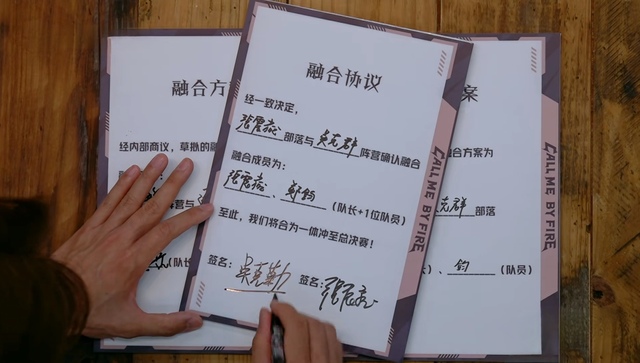 融合方
经内部商议，草拟的融
阵营与
（队长
融合协议
经一致决定，
张震岳部落与吴克群阵营确认融合
融合成员为：
张震岳、郑钧（队长+1位队员）
至此，我们将合为一体冲至总决赛！
签名：吴克勤 签名：张震岳
CALL ME BY FIRE
案
融合方案为
克群部落
）、钧（队员）
CALL ME BY FIRE